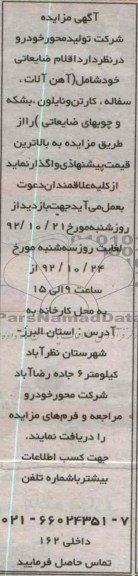 آگهی مزایده
شرکت تولیدمحورخودرو
درنظرداردا قلام ضایعاتی
خودشامل(آهن آلات ،
سفاله ، کارتن‌ونایلون ،بشکه
و چوبهای ضایعاتی )رااز
طریق مزایده به بالاترین
قیمت‌پیشنهادی‌واگذارنماید
ازکلیه‌علاقمندان‌دعوت
بعمل‌می‌آیدجهت‌بازدیداز
روزشنبه‌مورخ۲۱ /۱۰ /۹۲
لغایت روزسه‌شنبه مورخ
۲۴ /۱۰ /۹۲ از
ساعت ۹ الی ۱۵
به محل کارخانه به
آدرس : استان البرز-
شهرستان نظرآباد
کیلومتر۶ جاده رضاآباد
شرکت محورخودرو
مراجعه و فرم‌های مزایده
را دریافت نمایند.
جهت کسب اطلاعات
بیشترباشماره تلفن
۰۲۱-۶۶۰۲۴۳۵۱-۷
داخلی ۱۶۲
تماس حاصل فرمایید
ParsNamadData